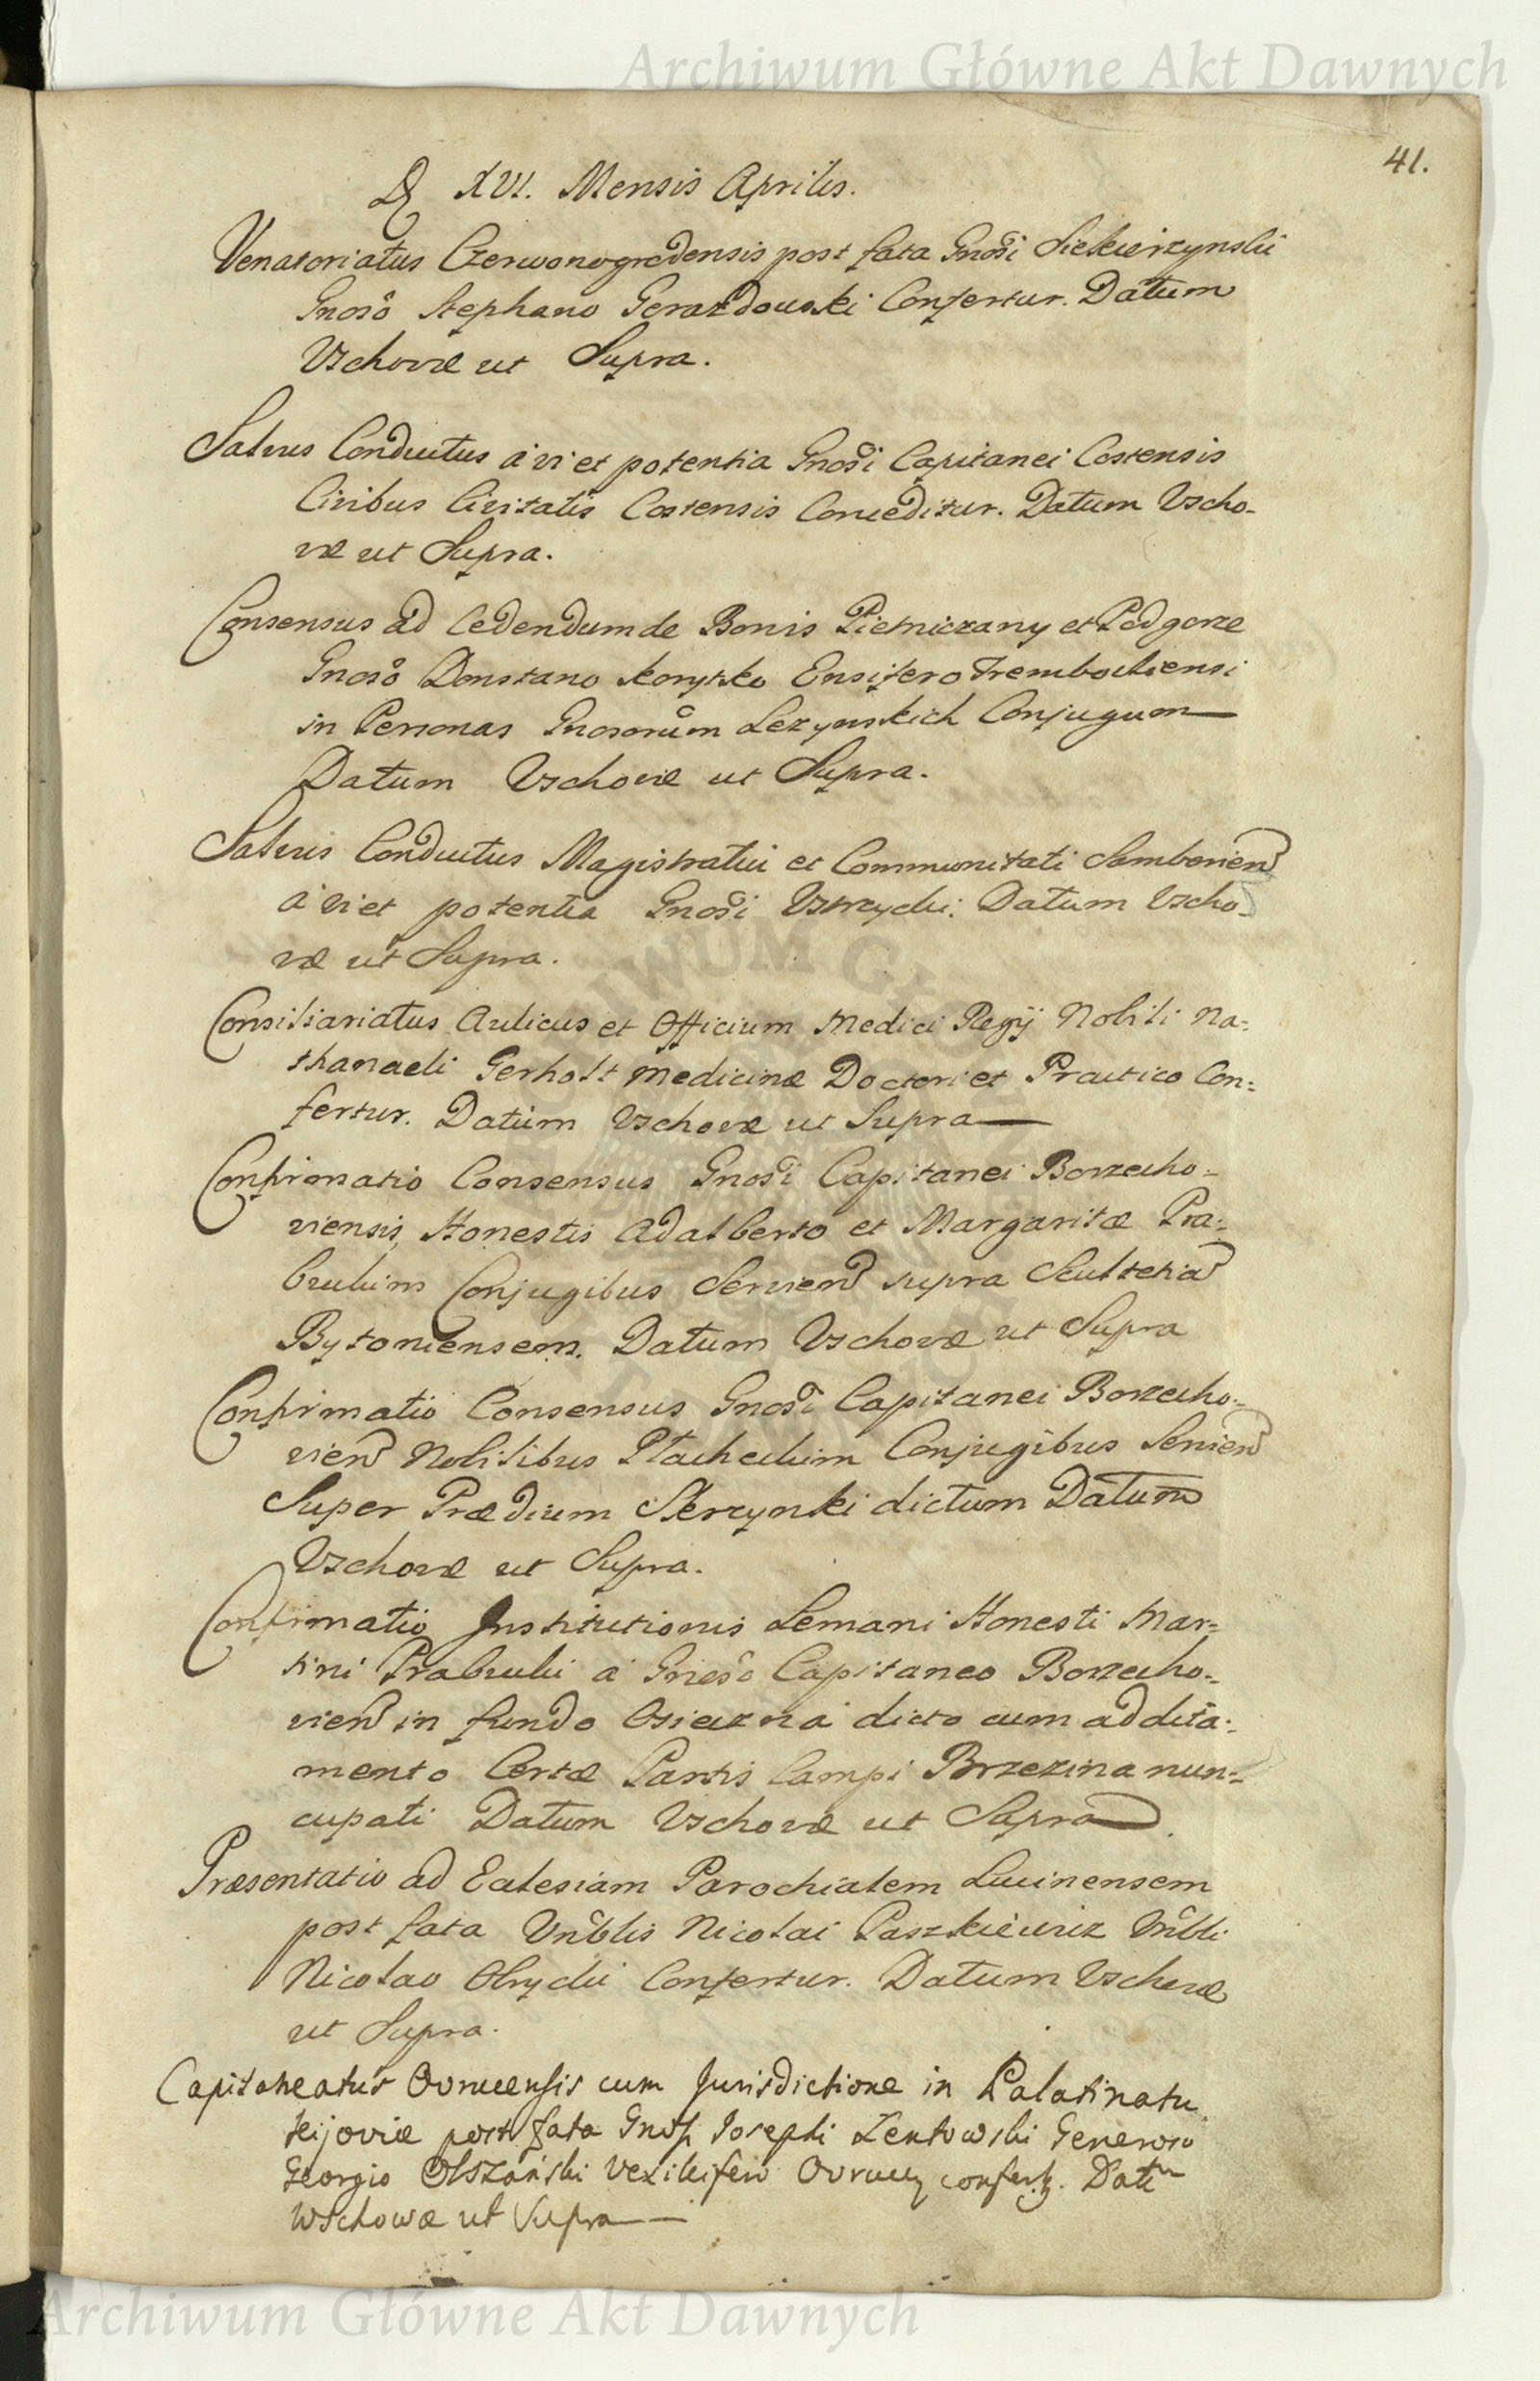 Archiwum Główne Akt Dawnych
41.
D XVI. Mensis Aprilis.
Venatoriatus Czerwonogrodensis post fata Gnosi Siekierzynski
Gnoso Stephano Gerazdowski Confertur. Datum
Vschovæ ut Supra.
Salvus Conductus a vi et potentia Gnosi Capitanei Costensis
Civibus Civitatis Costensis Conceditur. Datum Vscho-
væ ut Supra.
Consensus ad Cedendum de Bonis Pietniczany et Podgorze
Gnoso Konstano Korytko Ensifero Trembovliensi
in Personas Gnosorum Lezynskich Conjugum
Datum Vschoviæ ut Supra.
Salvus Conductus Magistratui et Communitati Samborien
a vi et potentia Gnosi Vstrzycki. Datum Vscho-
væ ut Supra.
Consiliariatus Aulicus et Officium Medici Regij Nobili Na-
thanaeli Gerholt Medicinæ Doctori et Practico Con-
fertur. Datum Vschovæ ut Supra
Confirmatio Consensus Gnosi Capitanei Borzecho-
viensis, Honestis Adalberto et Margaritæ Pra-
buckim Conjugibus Servien supra Scultetia
Bytoniensem. Datum Vschovæ ut Supra
Confirmatio Consensus Gnosi Capitanei Borzecho-
vien Nobilibus Ptacheckim Conjugibus Servien
Super Prædium Skrzynki dictum Datum
Vschovæ ut Supra.
Confirmatio Institutionis Lemani Honesti Mar-
tini Prabucki a Gnoso Capitaneo Borzecho-
vien in fundo Osieczna dicto cum addita-
mento Certæ Partis Campi Brzezina nun-
cupati Datum Vschovæ ut Supra
Præsentatio ad Eclesiam Parochialem Lucinensem
post fata Vnblis Nicolai Paszkiewicz Vnbli
Nicolao Obrycki Confertur. Datum Vschovæ
ut Supra.
Capitaneatus Ovrucensis cum Jurisdictione in Palatinatu
Kijoviæ post fata Gnosi Josephi Lentowski Generoso
Georgio Olszański Vexillifero Ovrucen confertur. Datum
Wschowæ ut Supra
Archiwum Główne Akt Dawnych